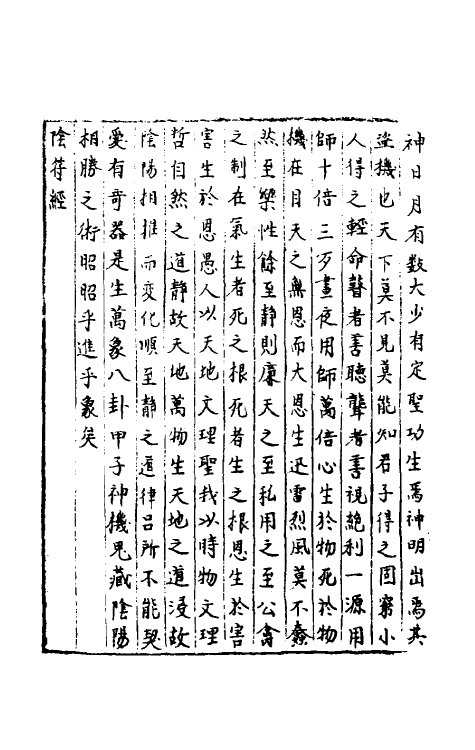 神日月有数大少有定聖功生焉神明出焉其
盗機也天下莫不見莫能知君子得之固窮小
人得之輕命瞽者善聽聾者善視絶利一源用
師十倍三反晝夜用師萬倍心生於物死於物
機在目天之無恩而大恩生迅雷烈風莫不蠢
然至樂性餘至静則廉天之至私用之至公禽
之制在氣生者死之根死者生之根恩生於害
害生於恩愚人以天地文理聖我以時物文理
哲自然之道静故天地萬物生天地之道浸故
陰陽相推而變化順至静之道律吕所不能契
爰有竒器是生萬象八卦甲子神機鬼藏陰陽
相勝之術昭昭乎進乎象矣
陰符經